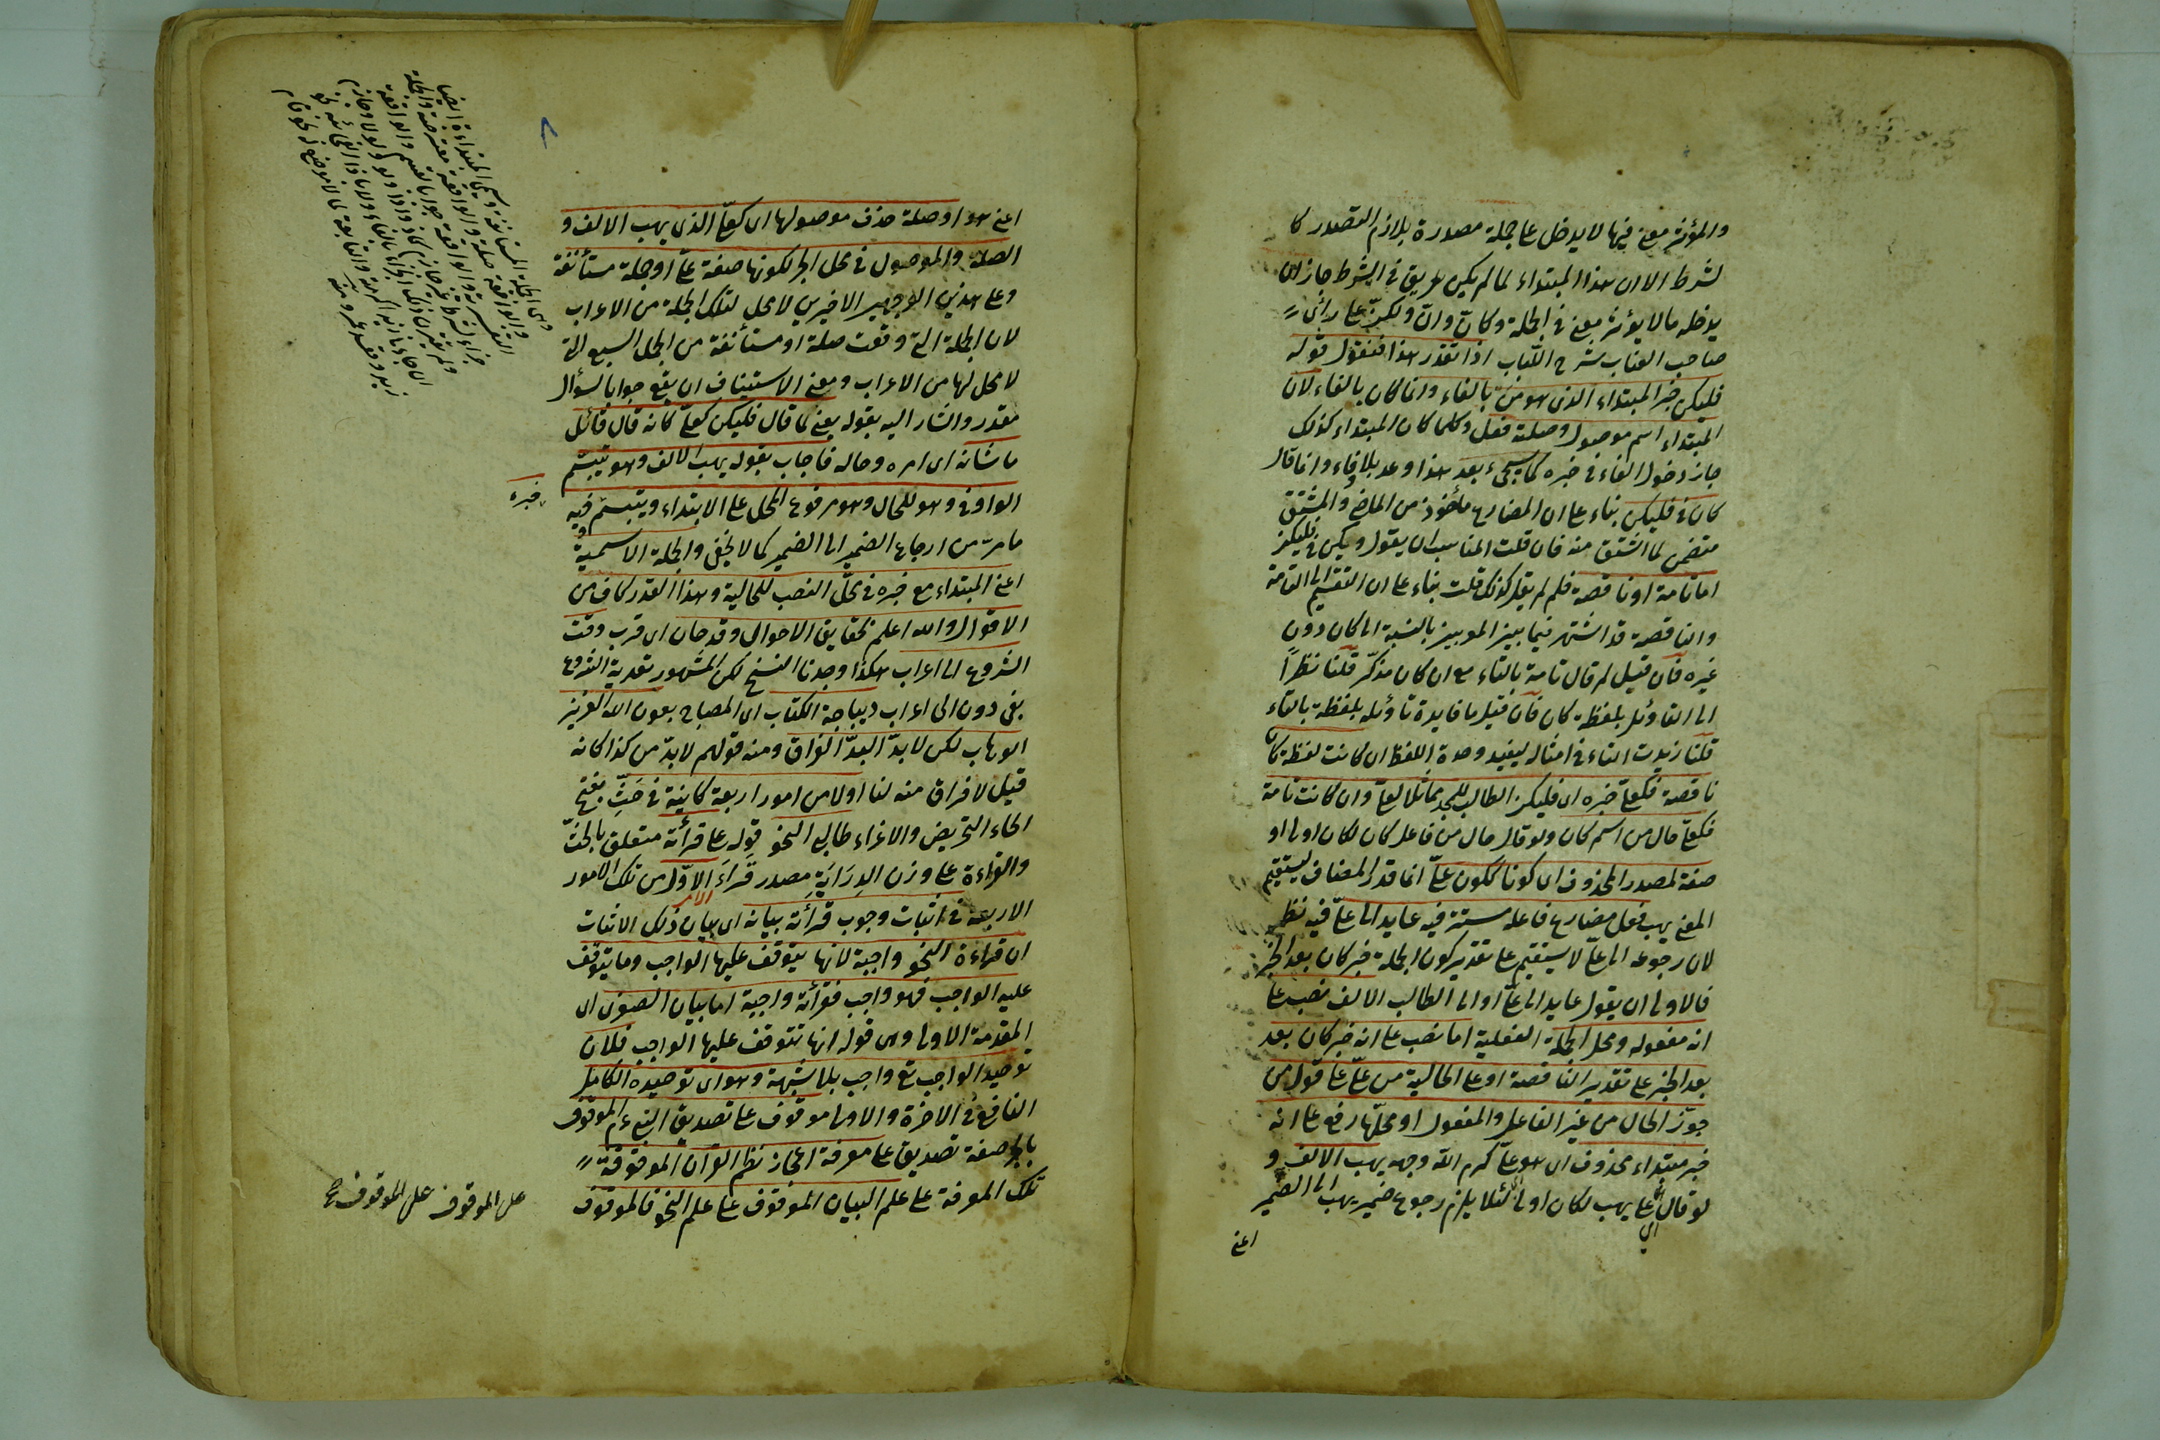 والمؤثر معنى فيها لا يدخل على جملة مصدرة بلازم التصدر كا
لشرط الا ان هذا المبتداء لما لم يكن عريق في الشرط جاز ان
يدخله ما لا يؤثر معنى في الجملة وكان وان ولكن على رأى
صاحب العباب شرح اللباب اذا تقرر هذا فنقول قوله
فليكن خبر المبتداء الذى هو من بالفاء وانما كان بالفاء لان
المبتداء اسم موصول وصلته فعل وكلما كان المبتداء كذلك
جاز دخول الفاء في خبره كما يجيء بعد هذا وعد بلا وفاء وانما قال
كان في فليكن بناء على ان المضارع مأخوذ من الماضي والمشتق
متضمن لما اشتق منه فان قلت المناسب ان يقول ويكن في فليكن
اما تامة او ناقصة فلم لم يقل كذلك قلت بناء على ان التقسيم الى التامة
والناقصة قد اشتهر فيما بين المعربين بالنسبة الى كان دون
غيره فان قيل لم قال تامة بالتاء مع ان كان مذكر قلنا نظرا
الى التاؤيل بلفظة كان فان قيل ما فايدة تاؤيله بلفظة بالتاء
قلنا زيدت التاء في امثاله ليفيد وحدة اللفظ ان كانت لفظة كان
ناقصة فكعلى خبره اى فليكن الطالب للمجد مماثلا لعلى وان كانت تامة
فكعلى حال من اسم كان ولو قال حال من فاعل كان لكان اولى او
صفة لمصدر المحذوف اى كونا ككون على انما قدر المضاف ليستقيم
المعنى يهب فعل مضارع فاعله مستتر فيه عايد الى على فيه نظر
لان رجوعه الى على لا يستقيم على تقدير كون الجملة خبر كان بعد الخبر
فالاولى ان يقول عايد الى على او الى الطالب الالف نصب على
انه مفعوله ومحل الجملة الفعلية اما نصب على انه خبر كان بعد
بعد الخبر على تقدير الناقصة او على الحالية من على على قول من
جوّز الحال من غير الفاعل والمفعول او محلها رفع على انه
خبر مبتداء محذوف اى هو على كرم الله وجهه يهب الالف و
لو قال اى على يهب لكان اولى لئلا يلزم رجوع ضمير يهب الى الضمير
اعنى
اعنى هو او صلة حذف موصولها اى كعلى الذي يهب الالف و
الصلة والموصول في محل الجر لكونها صفة على او جملة مستأنفة
وعلى هذين الوجهين الاخيرين لا محل لتلك الجملة من الاعراب
لان الجملة التى وقعت صلة او مستأنفة من الجمل السبع التى
لا محل لها من الاعراب ومعنى الاستيناف ان يقع جوابا لسؤال
مقدر واشار اليه بقوله يعنى لما قال فليكن كعلى كانه قال قائل
ما شانه اى امره وحاله فاجاب بقوله يهب الالف وهو يتبسم
الواو في وهو للحال وهو مرفوع المحل على الابتداء ويتبسم فيه
خبره
ما مر من ارجاع الضمير الى الضمير كما لا يخفى والجملة الاسمية
اعنى المبتداء مع خبره في محل النصب للحالية وهذا القدر كاف من
الاقوال والله اعلم بحقايق الاحوال وقد حان اى قرب وقت
الشروع الى اعراب هكذا وجدنا النسخ لكن المشهور تعدية الشروع
بفى دون الى اعراب ديباجة الكتاب اى المصباح بعون الله العزيز
الوهاب لكن لا بد البد الفراق ومنه قولهم لا بد من كذا كانه
قيل لا فراق منه لنا اولا من امور اربعة كاينة في حَثِّ بفتح
الحاء التحريض والاغراء طالب النحو قوله على قرأته متعلق بالحث
والقراءة على وزن الدِرَايَةِ مصدر قَرَأَ الاول من تلك الامور
الاربعة في اثبات وجوب قرأته بيانه اى بيان ذلك الاثبات
ان قراءة النحو واجبة لانها يتوقف عليها الواجب وما يتوقف
عليه الواجب فهو واجب فقرأته واجبة اما بيان الصغرى اى
المقدمة الاولى وهى قوله انها تتوقف عليها الواجب فلان
توحيد الواجب تع واجب بلا شبهة وهو اى توحيده الكامل
النافع في الاخرة والاولى موقوف على تصديق النبى عم الموقوف
بالجر صفة تصديق على معرفة اعجاز نظم القرآن الموقوفة
تلك المعرفة على علم البيان الموقوف على علم النحو فالموقوف
على الموقوف على الموقوف صح